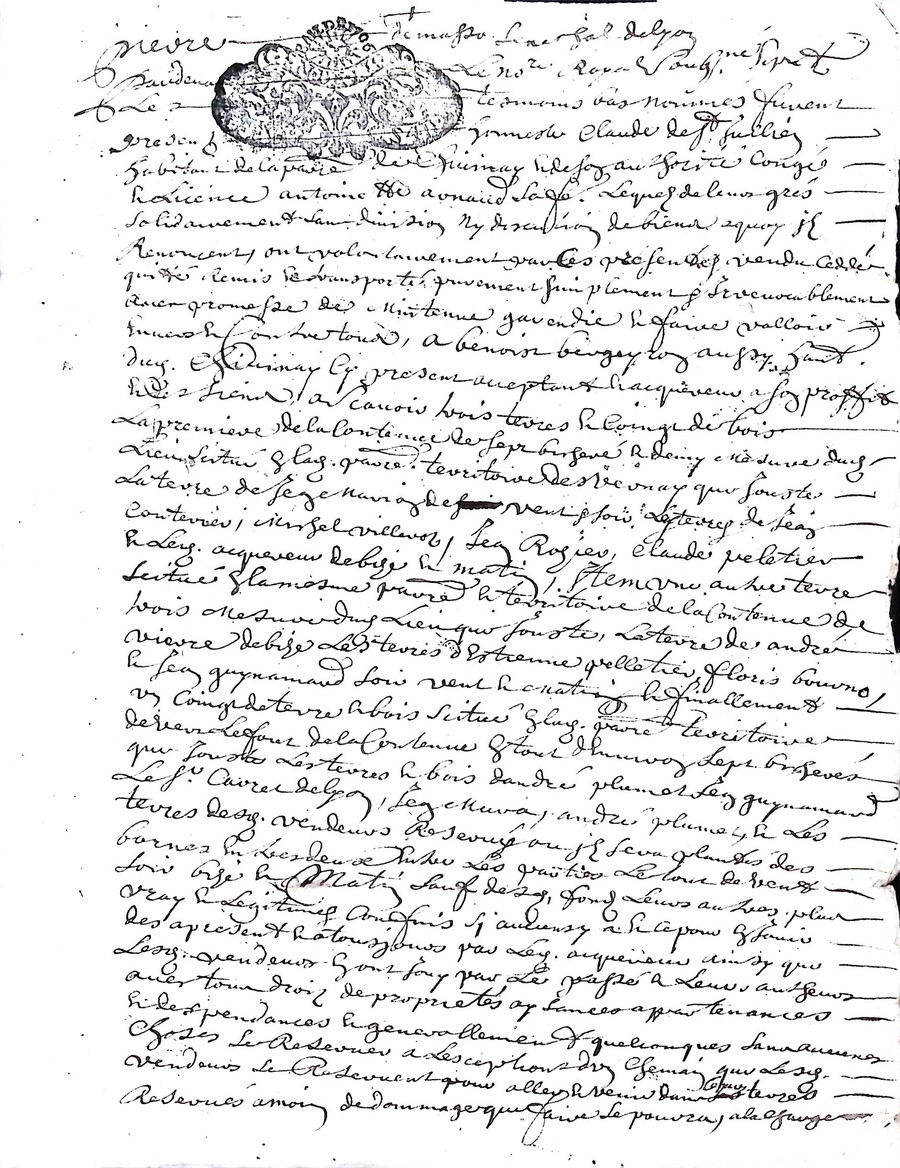 pierre demasso Seneschal delyon
Pardevant Le no.re Royal Soubsne
& Les tesmoins bas nommes furent
present honneste Claude de st Jullien
habitant de la parre de Chuirnay & de son authorité Congé
& Licence antoinette arnaud sa fe. Lequel de leurs grés
solidairement sans division ny discution de biens a quoy ils
Renoncent, ont volontairement par Ces presentes vendu Ceddé
quitté Remis & transporté purement simplement & Irrevocablement
avec promesse de Maintenue garendie & faire valloir
Envers & Contre tous, a benoist bergeyron aussy habt.
dud. Chuirnay Cy present acceptant & acquereur a son proffit
& des siens, a Scavoir trois terres & Coings de bois
La premiere de la Contenue de sept bicherés & demy Mesure dud.
Lieu Scitué En lad. parre. territoire des Vernay que Jouste
La terre de Jege Marion de vent & soir, Les terres de Jean
Conterier, Michel villerot, Jean Rozier, Claude peletier
& Led. acquereur de bize & matin, Item une autre terre
Scitué En la mesme parre & territoire de la Contenue de
trois Mesures dud. Lieu que Jouste, La terre de andré
vierre de bize Les terres d'Estienne pelletier, floris bourno,
& Jean guynamard soir vent & matin & finallement
un Coing de terre & bois Scitué En lad. parre territoire
de La Contenue En tout d'Environ sept bicherés
que Jouste Les terres & bois d'andré plumet Jean guynamard
Le Sr. Carret delyon, Jean Mura, andré plumet, & Les
terres desd. vendeurs Reservés ou il sera planté des
bornes Entre Les parties Le tout de vent
soir bize & Matin sauf desd. fonds Leurs autres plus
vray & Legitimes Confins si aucuns y a & ce pour En Jouir
des apresent & a tousjours par Led. acquereur ainsy que
Lesd. vendeurs En ont Jouy par Le passé & Leurs autheurs
avec tous droits de proprietés aysances appartenances
& despendances & generallement quelconques sans aucunes
Choses Se Reserver a Lesception d'un Chemin que Lesd.
vendeurs Se Reservent pour aller & venir dans Leurs terres
Reservés a moins de dommage que faire Se pourra, a la Charge